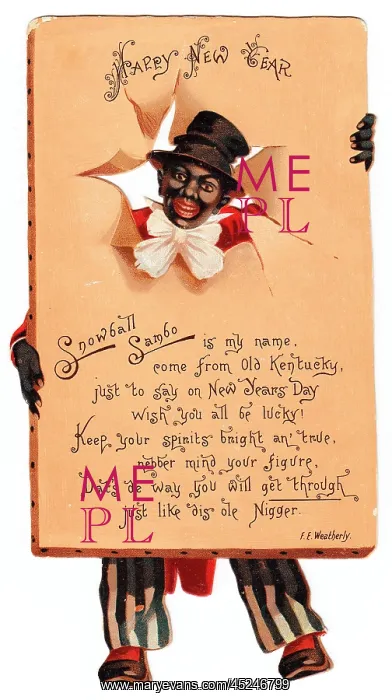 Happy New Year
ME
PL
Snowball Sambo is my name,
come from Old Kentucky,
just to say on New Years Day
Wish you all be lucky!
Keep your spirits bright an' true,
nebber mind your figure,
Dat's de way you will get through
just like dis ole Nigger.
ME
PL
F.E. Weatherly.
www.maryevans.com/45246799